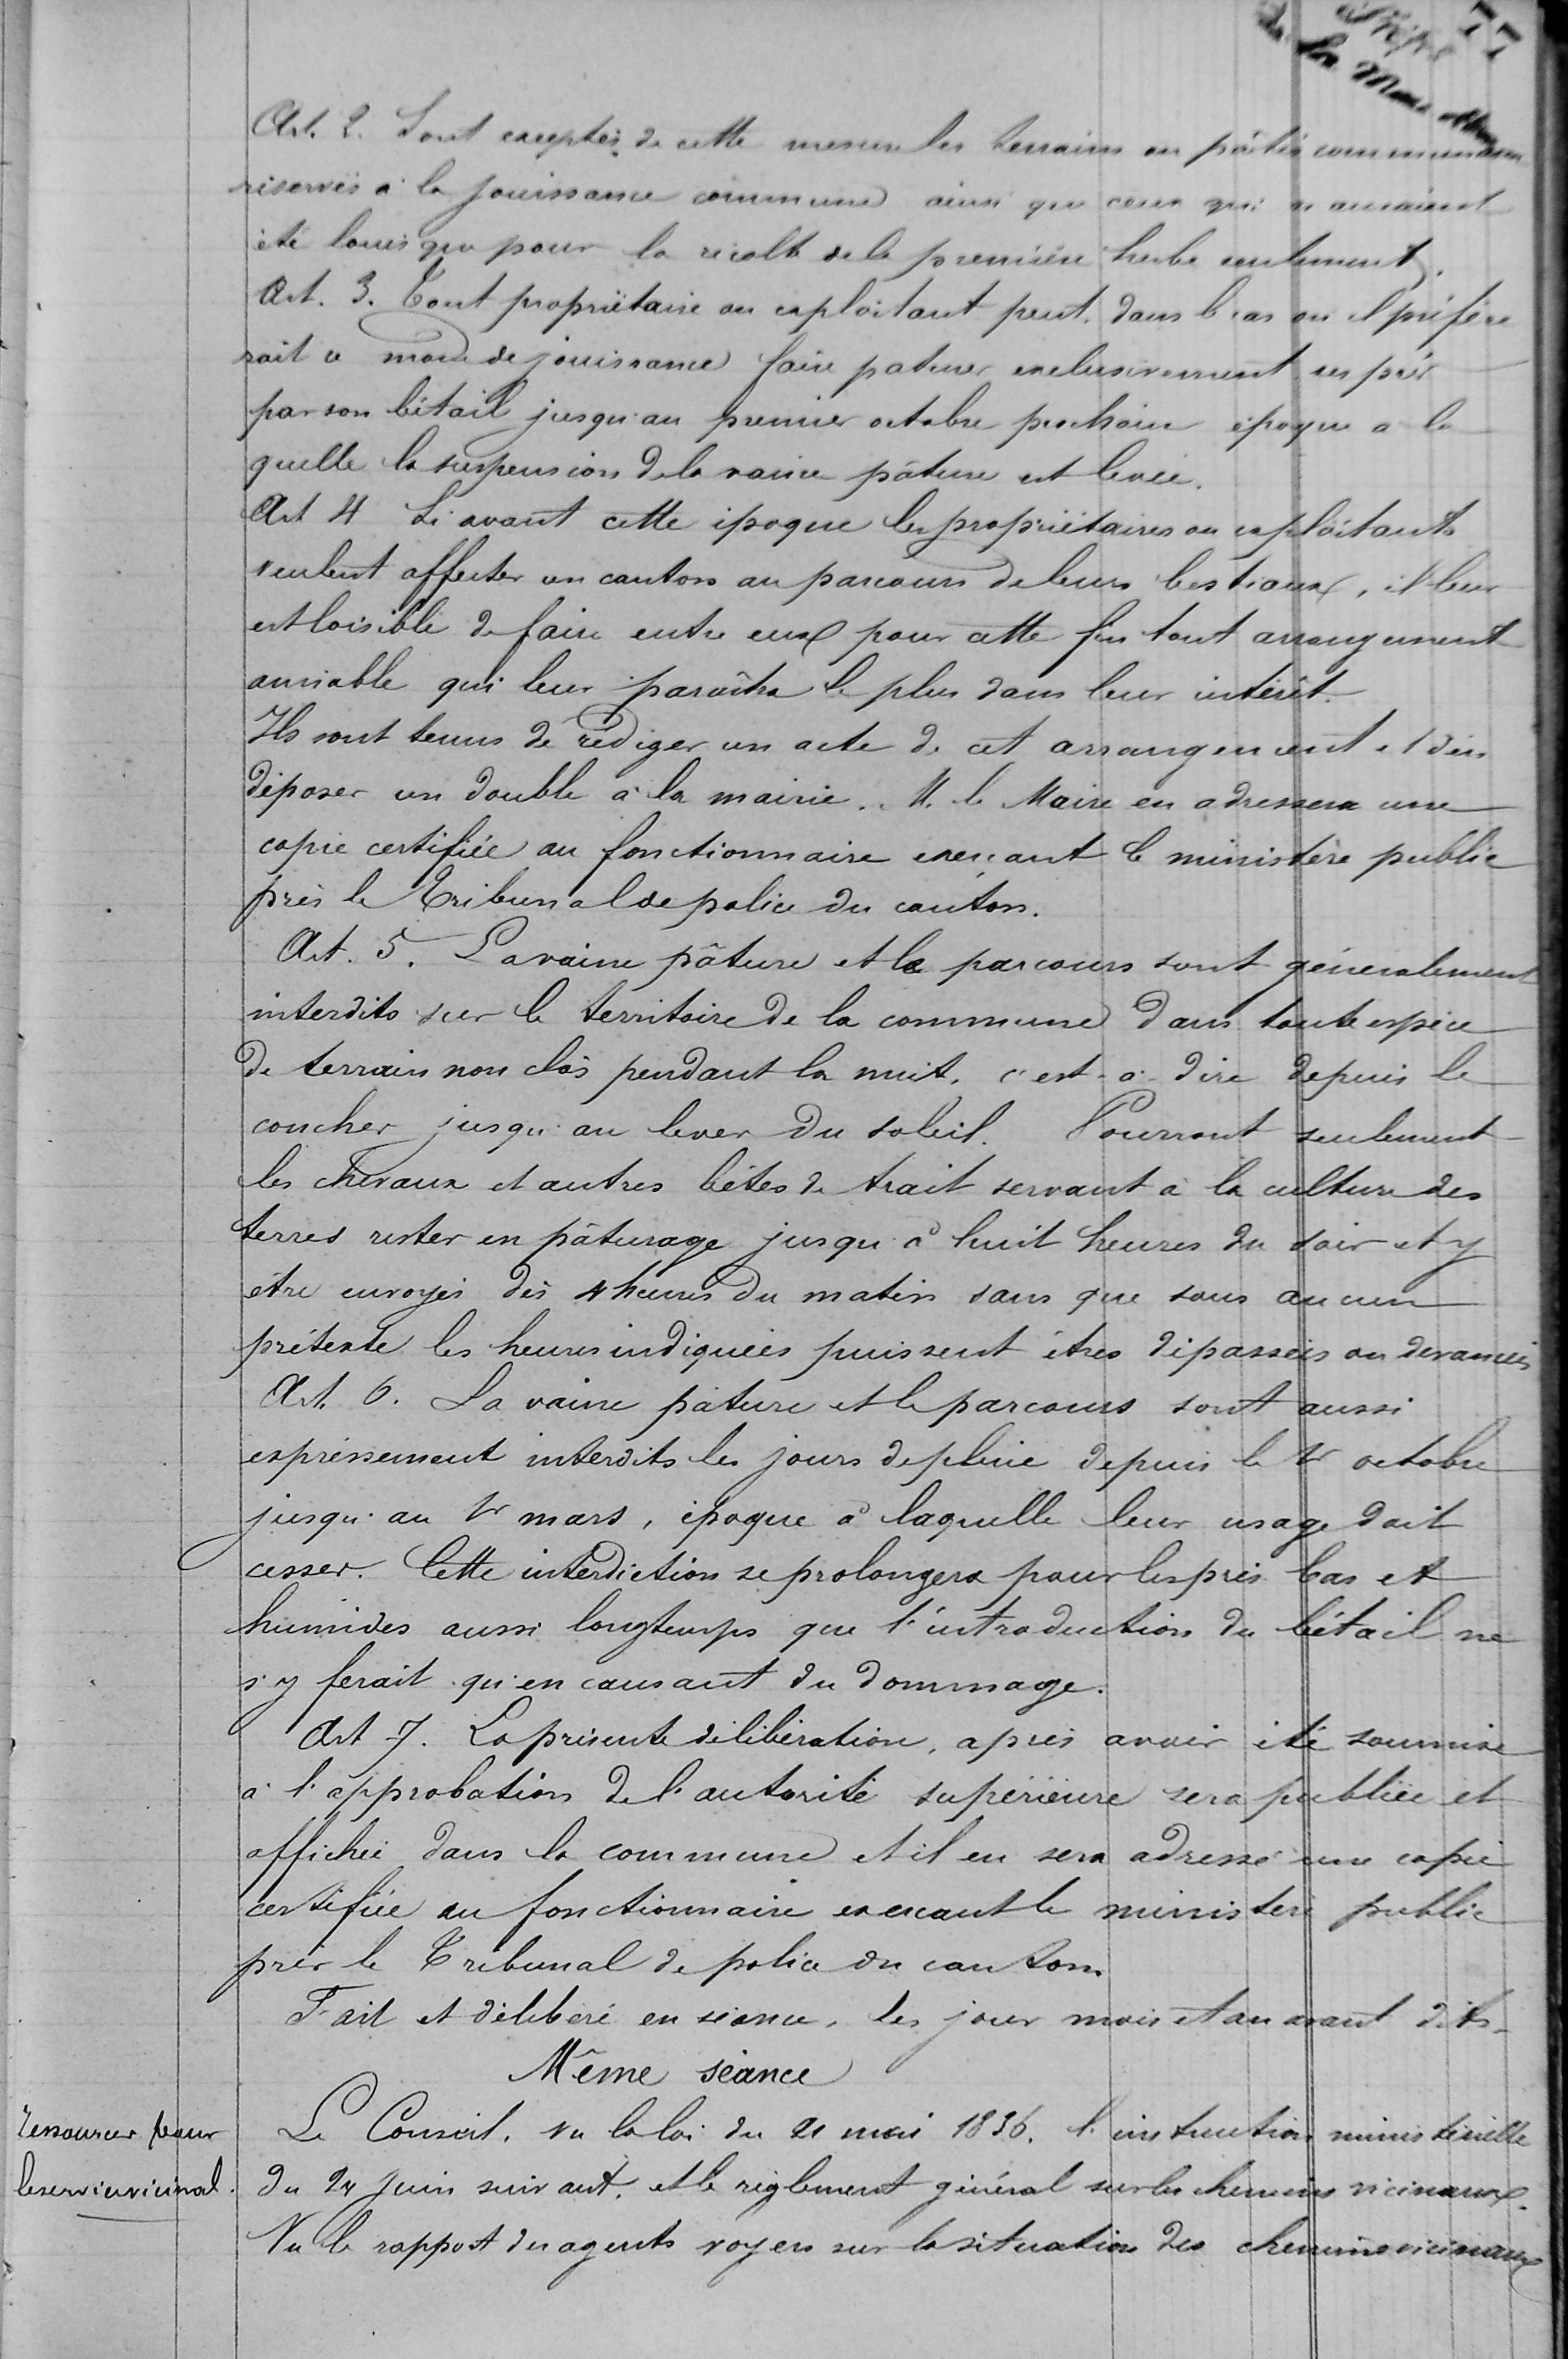 77
Art. 2. Sont exceptés de cette mesure les terrains ou pâtis communaux
réservés à la jouissance commune ainsi que ceux qui n'auraient
été loués que pour la récolte de la première herbe seulement.
Art. 3. Tout propriétaire ou exploitant peut, dans le cas ou il préfère
rait ce mode de jouissance faire paturer exclusivement ses prés
par son bétail jusqu'au premier octobre prochain époque a la
quelle la suspension de la vaine pâture est levée.
Art 4 Si avant cette époque les propriétaires ou exploitants
veulent affecter un canton au parcours de leurs bestiaux, il leur
est loisible de faire entre eux pour cette fin tout arrangement
amiable qui leur paraîtra le plus dans leur intérêt.
Ils sont tenus de rédiger un acte de cet arrangement et d'en
déposer un double à la mairie. M. le Maire en adressera une
copie certifiée au fonctionnaire exerçant le ministère public
près le Tribunal de police du canton.
Art. 5. La vaine pâture et le parcours sont généralement
interdits sur le territoire de la commune dans toute espèce
de terrain non clos pendant la nuit, c'est-à-dire depuis le
coucher jusqu'au lever du soleil. Pourront seulement
les chevaux et autres bêtes de trait servant à la culture des
terres rester en pâturage jusqu'à huit heures du soir et y
être envoyés dès 4 heures du matin sans que sous aucun
prétexte les heures indiquées puissent êtres dépassées ou devancées
Art. 6. La vaine pâture et le parcours sont aussi
expressement interdits les jours de pluie depuis le 1er octobre
jusqu'au 1er mars, époque à laquelle leur usage doit
cesser. Cette interdiction se prolongera pour les prés bas et
humides aussi longtemps que l'introduction du bétail ne
s'y ferait qu'en causant du dommage.
Art 7. La présente délibération, après avoir été soumise
à l'approbation de l'autorité supérieure sera publiée et
affichée dans la commune et il en sera adressé une copie
certifiée au fonctionnaire exercant le ministère public
près le Tribunal de police du canton
Fait et délibéré en séance, les jour mois et an avant dits.
Même séance
Ressources pour
le service vicinal.
Le Conseil, vu la loi du 21 mai 1836, l'instruction ministérielle
du 24 juin suivant, et le règlement général sur les chemins vicinaux.
Vu le rapport des agents voyers sur la situation des chemins vicinaux